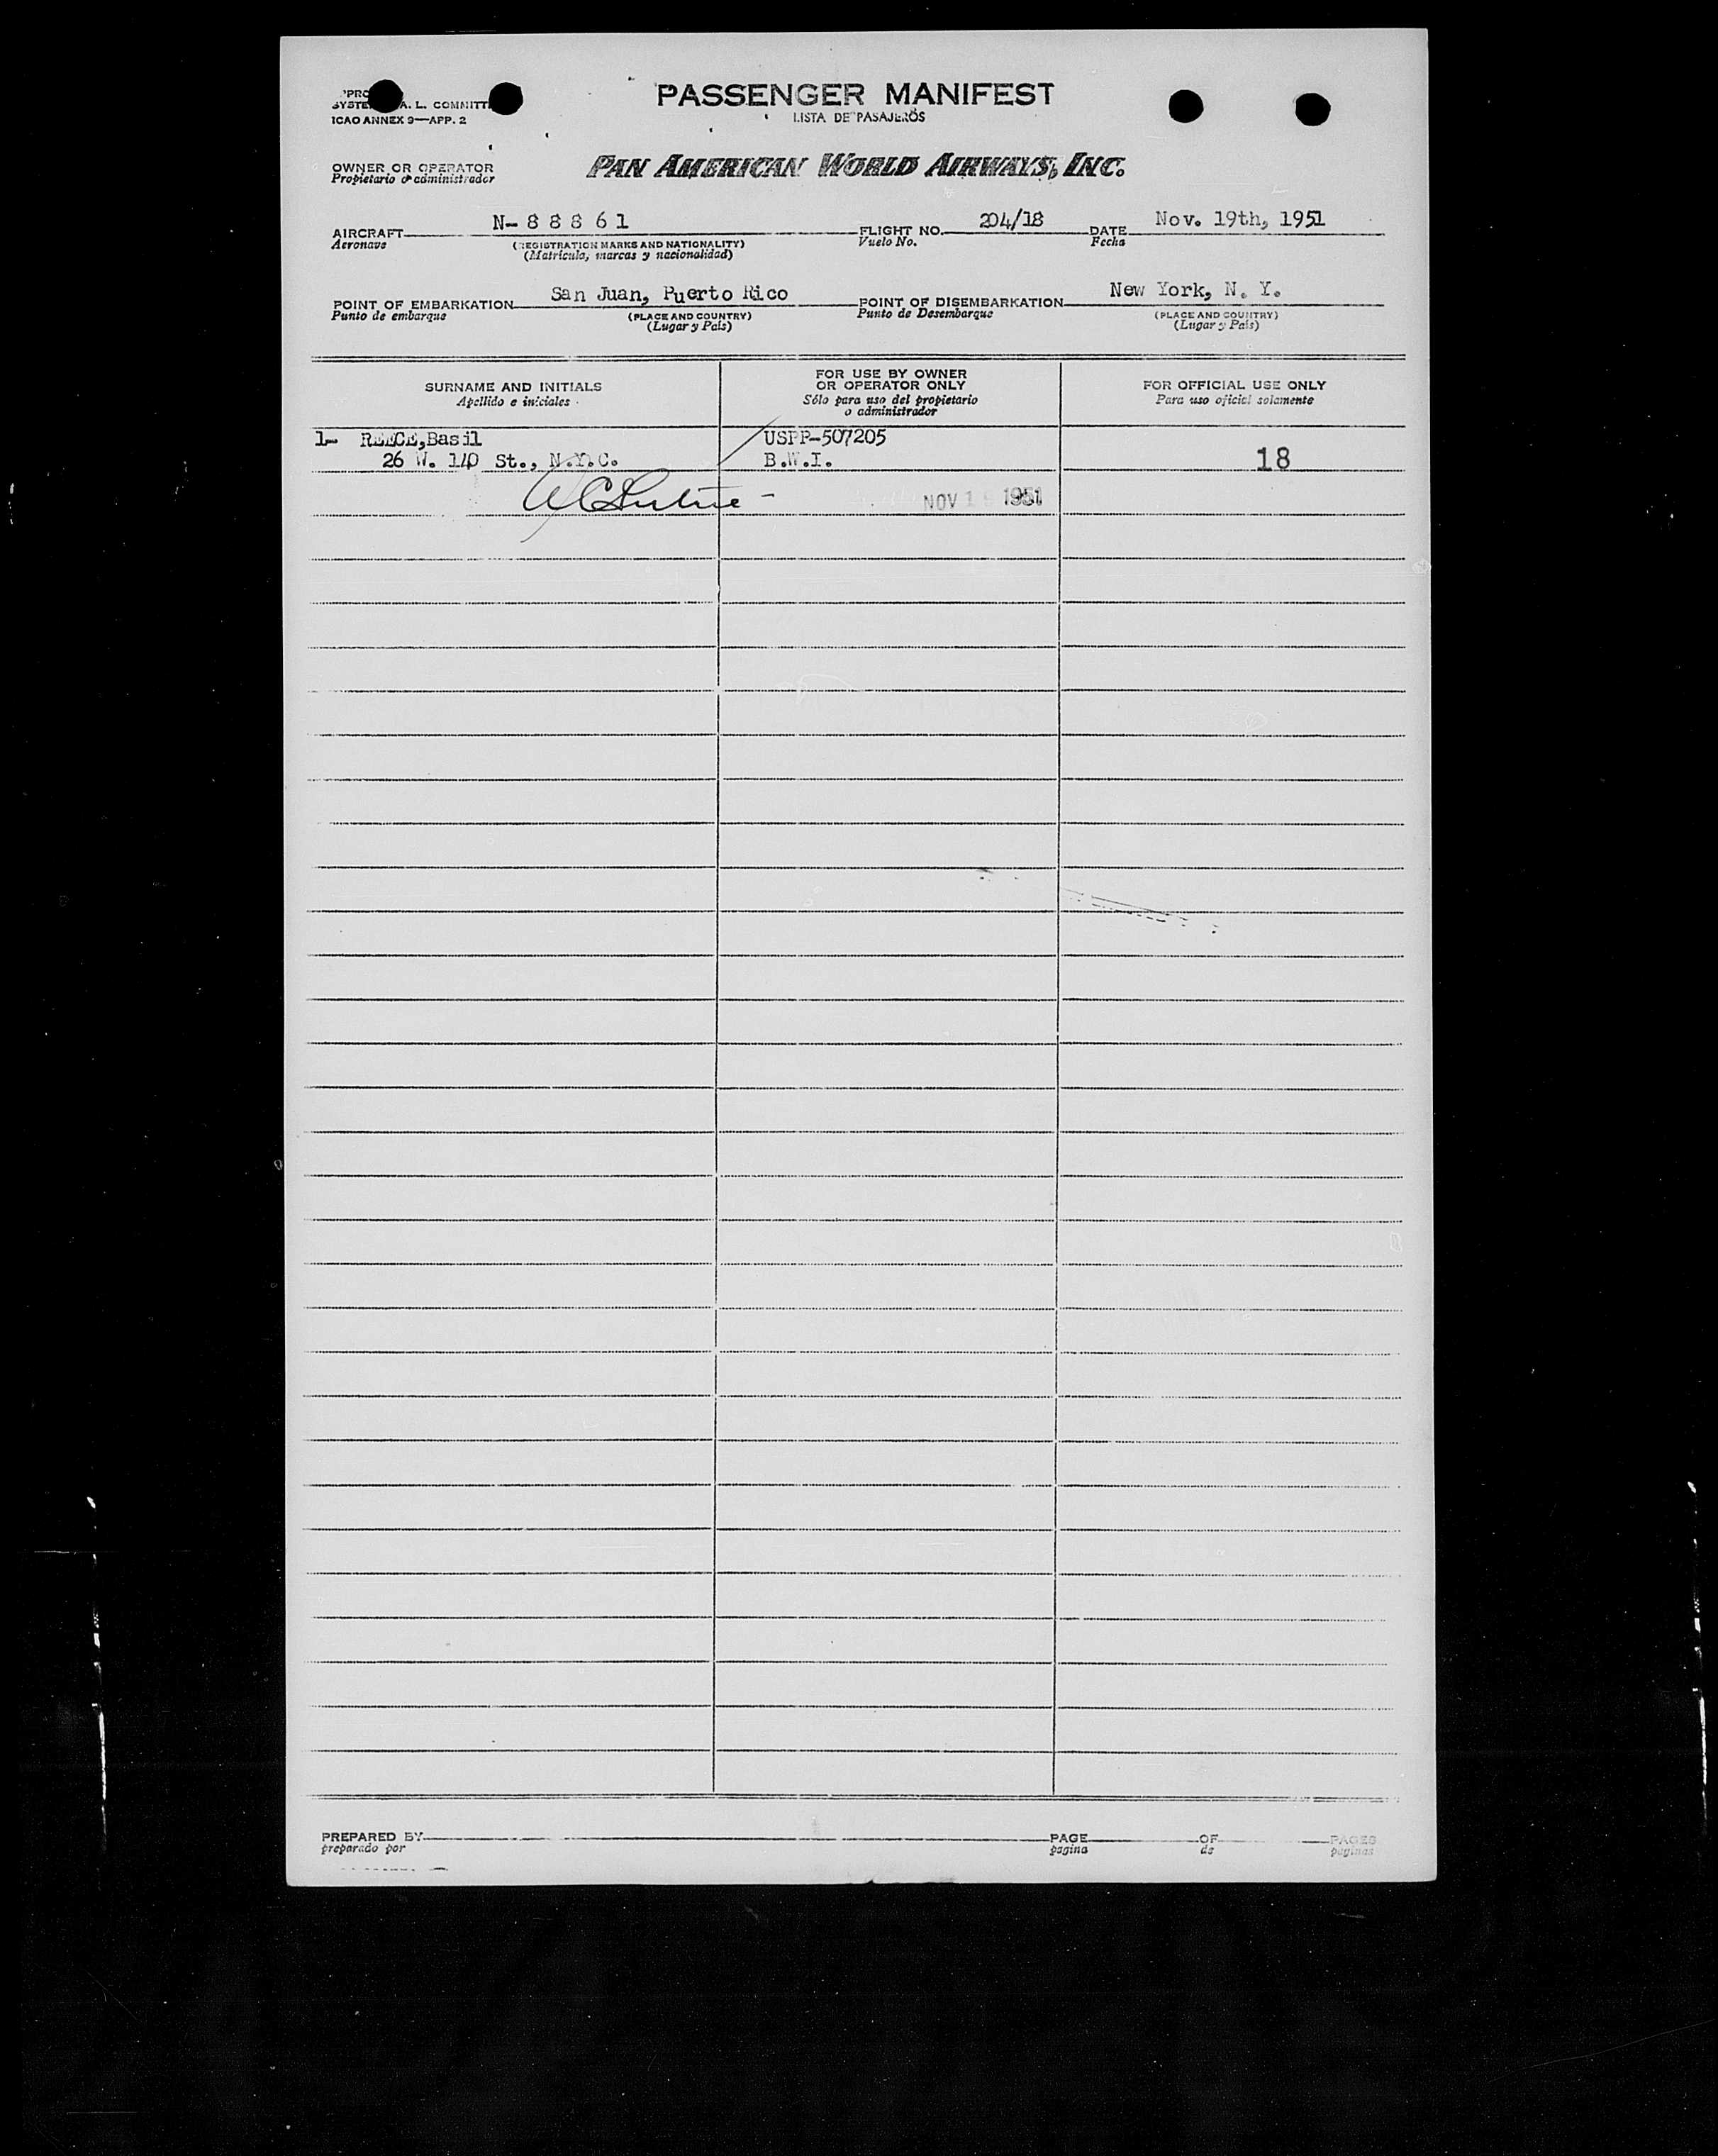 SYSTE A. L. COMMITT
ICAO ANNEX 9—APP. 2
PASSENGER MANIFEST
LISTA DE PASAJEROS
OWNER OR OPERATOR
Propietario o administrador
PAN AMERICAN WORLD AIRWAYS, INC.
AIRCRAFT N-88861 FLIGHT NO. 204/18 DATE Nov. 19th, 1951
Aeronave (REGISTRATION MARKS AND NATIONALITY) Vuelo No. Fecha
(Matricula, marcas y nacionalidad)
POINT OF EMBARKATION San Juan, Puerto Rico POINT OF DISEMBARKATION New York, N. Y.
Punto de embarque (PLACE AND COUNTRY) Punto de Desembarque (PLACE AND COUNTRY)
(Lugar y País) (Lugar y País)
SURNAME AND INITIALS
Apellido e iniciales
FOR USE BY OWNER
OR OPERATOR ONLY
Sólo para uso del propietario
o administrador
FOR OFFICIAL USE ONLY
Para uso oficial solamente
1- REECE,Basil USPP-507205
26 W. 140 St., N.Y.C. B.W.I. 18
NOV 19 1951
PREPARED BY PAGE OF PAGES
preparado por pagina de paginas